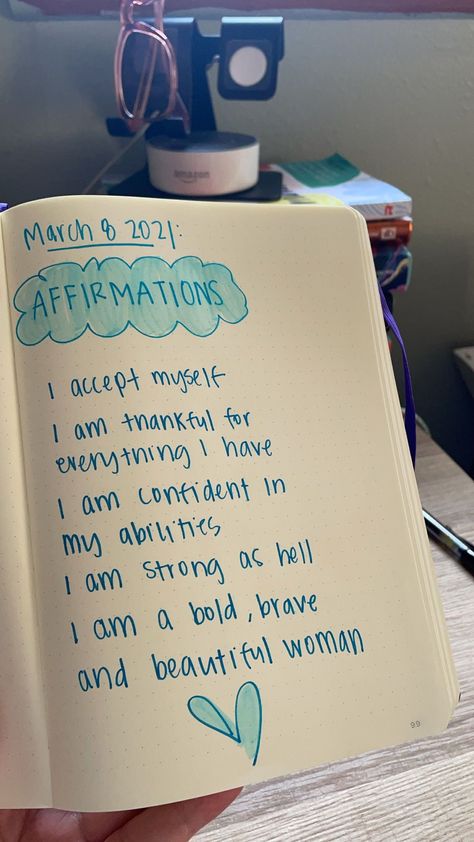 amazon
March 8 2021:
AFFIRMATIONS
I accept myself
I am thankful for
everything I have
I am confident in
my abilities
I am strong as hell
I am a bold, brave
and beautiful woman
99